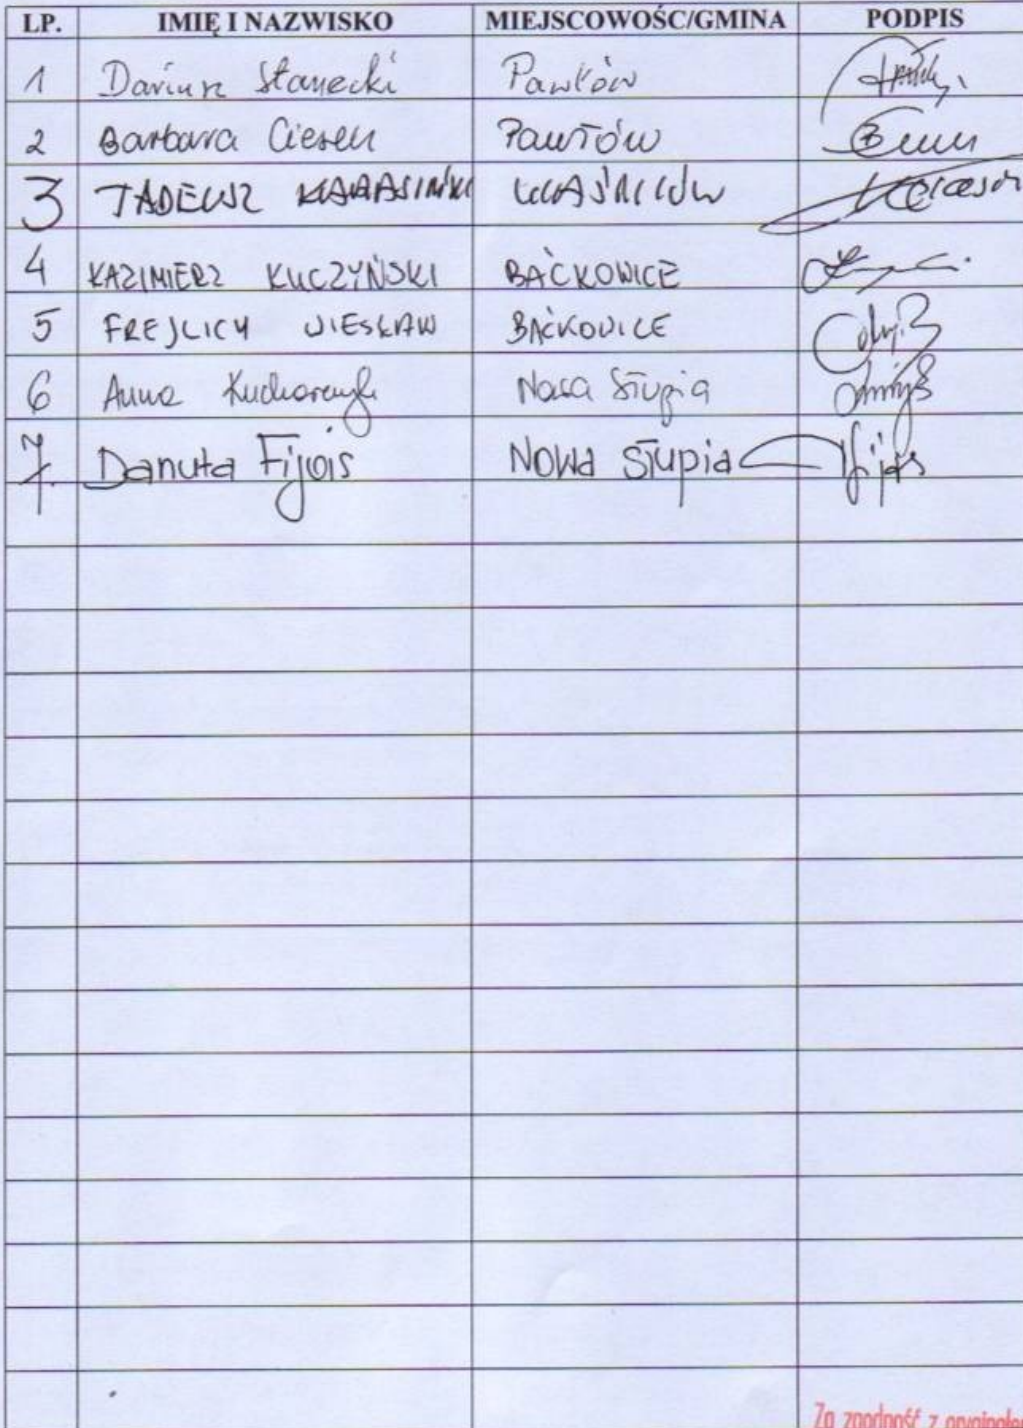 LP. IMIĘ I NAZWISKO MIEJSCOWOŚĆ/GMINA PODPIS
1 Dariusz Stanecki Pawłów
2 Barbara Ciesek Pawłów
3 TADEUSZ WAŚNIÓW
4 KAZIMIERZ KUCZYŃSKI BAĆKOWICE
5 FREJLICH WIESŁAW BAĆKOWICE
6 Anna Kucharczyk Nowa Słupia
7. Danuta Fijoś Nowa Słupia Fijoś
Za zgodność z oryginałem